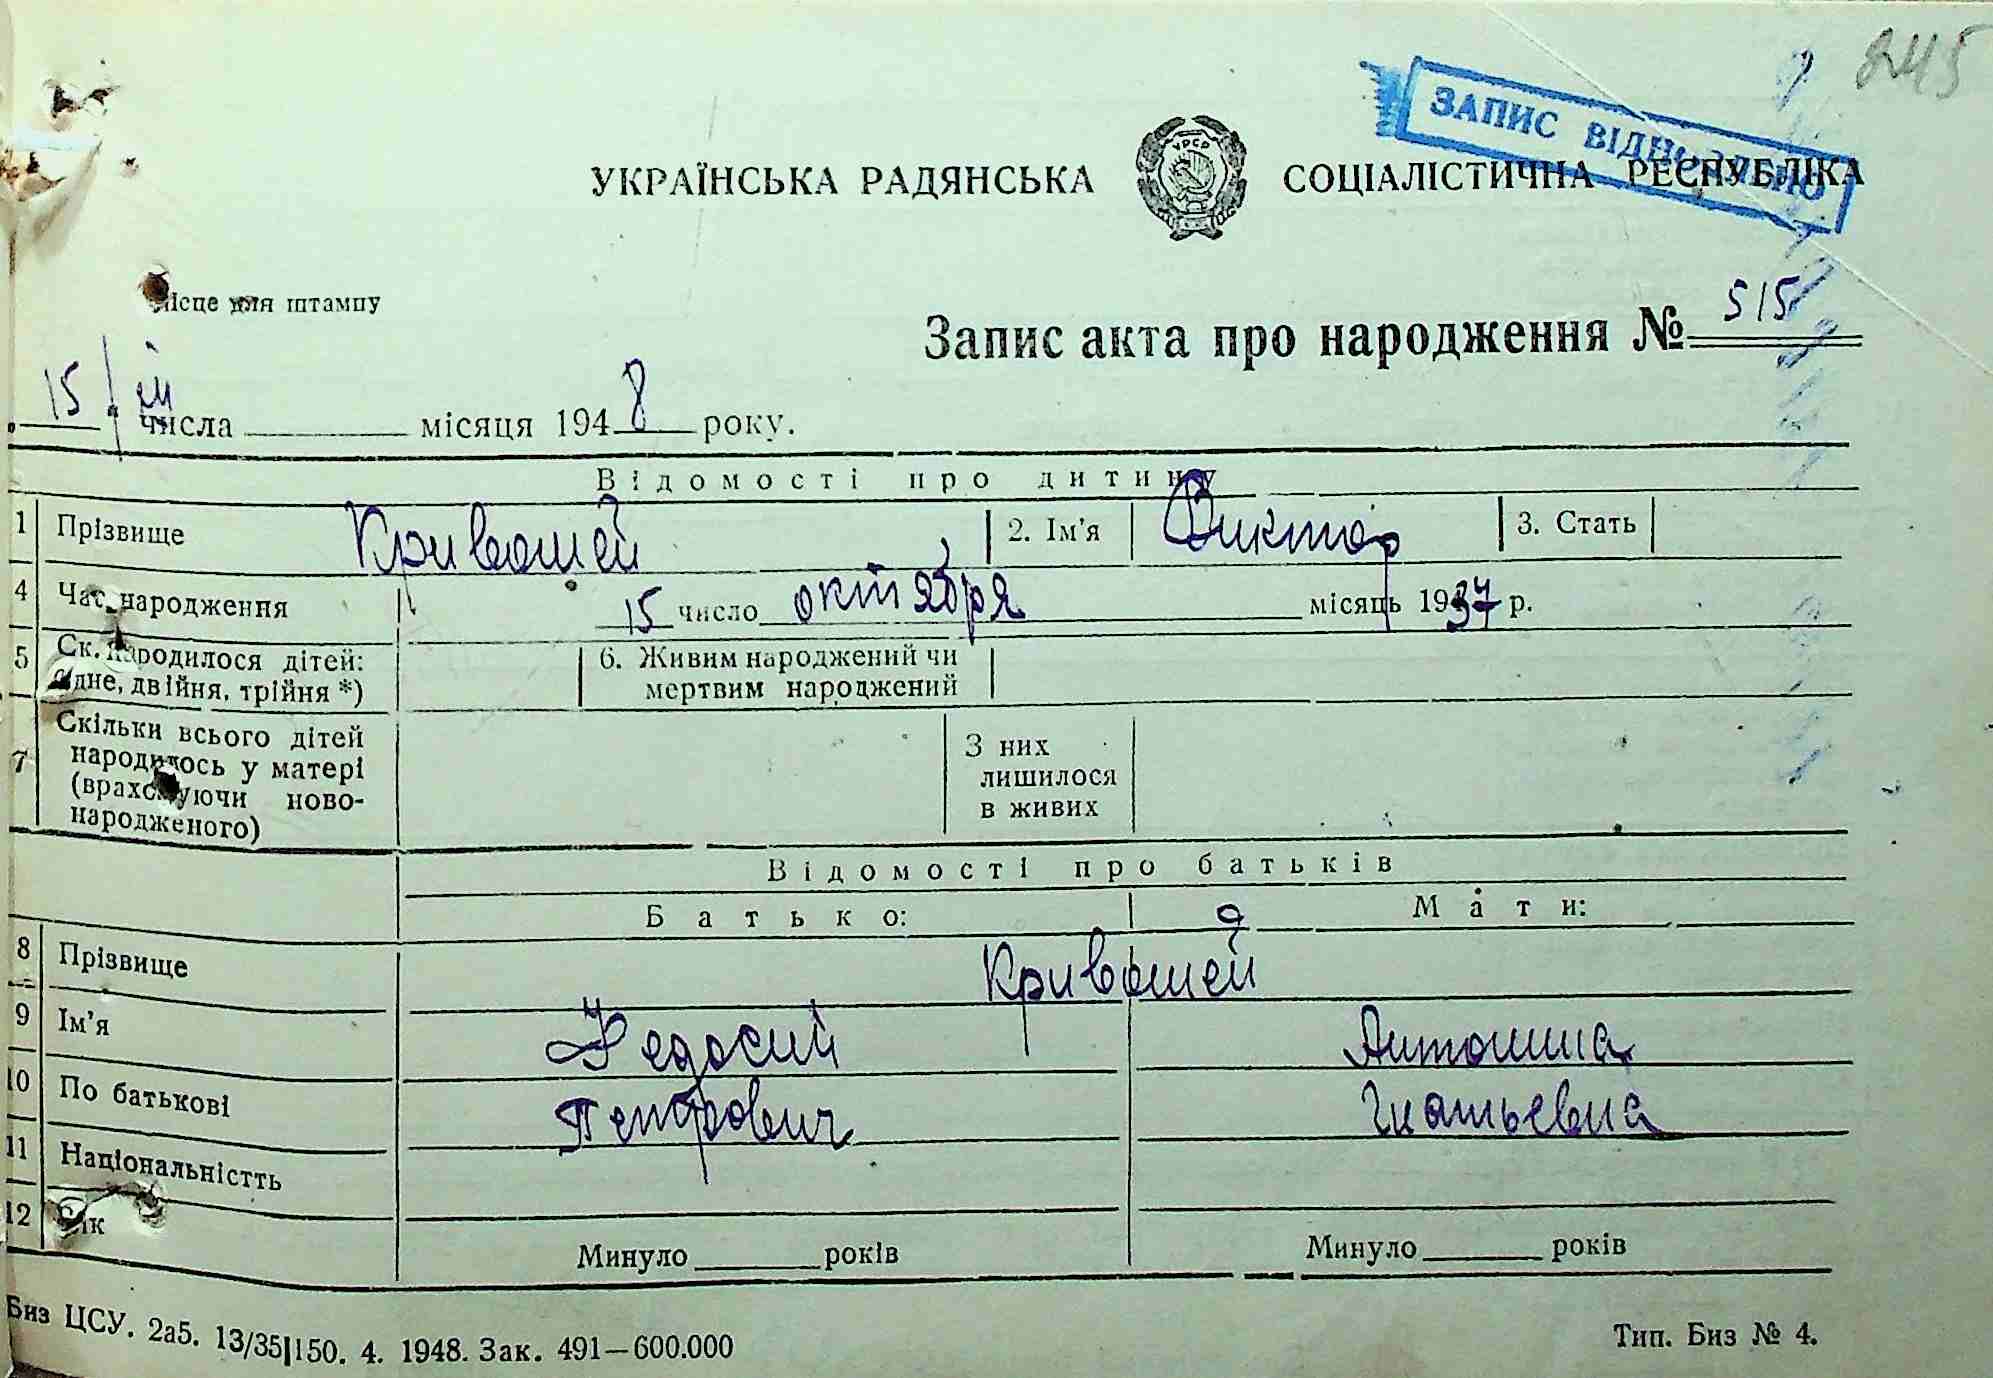 245
ЗАПИС ВІДНОВЛЕНО
УРСР
УКРАЇНСЬКА РАДЯНСЬКА СОЦІАЛІСТИЧНА РЕСПУБЛІКА
Місце для штампу
Запис акта про народження № 515
15 числа місяця 1948 року.
Відомості про дитину
1 Прізвище Кривошей 2. Ім'я Виктор 3. Стать
4 Час народження 15 число октября місяць 1937 р.
5 Ск. народилося дітей: 6. Живим народжений чи
одне, двійня, трійня *) мертвим народжений
7 Скільки всього дітей
народилось у матері
(враховуючи ново-
народженого)
З них
лишилося
в живих
Відомості про батьків
Батько: Мати:
8 Прізвище Кривошей
9 Ім'я Федосий Антонина
10 По батькові Петрович Игнатьевна
11 Національністть
12 Вік Минуло років Минуло років
Биз ЦСУ. 2а5. 13/35|150. 4. 1948. Зак. 491—600.000 Тип. Биз № 4.